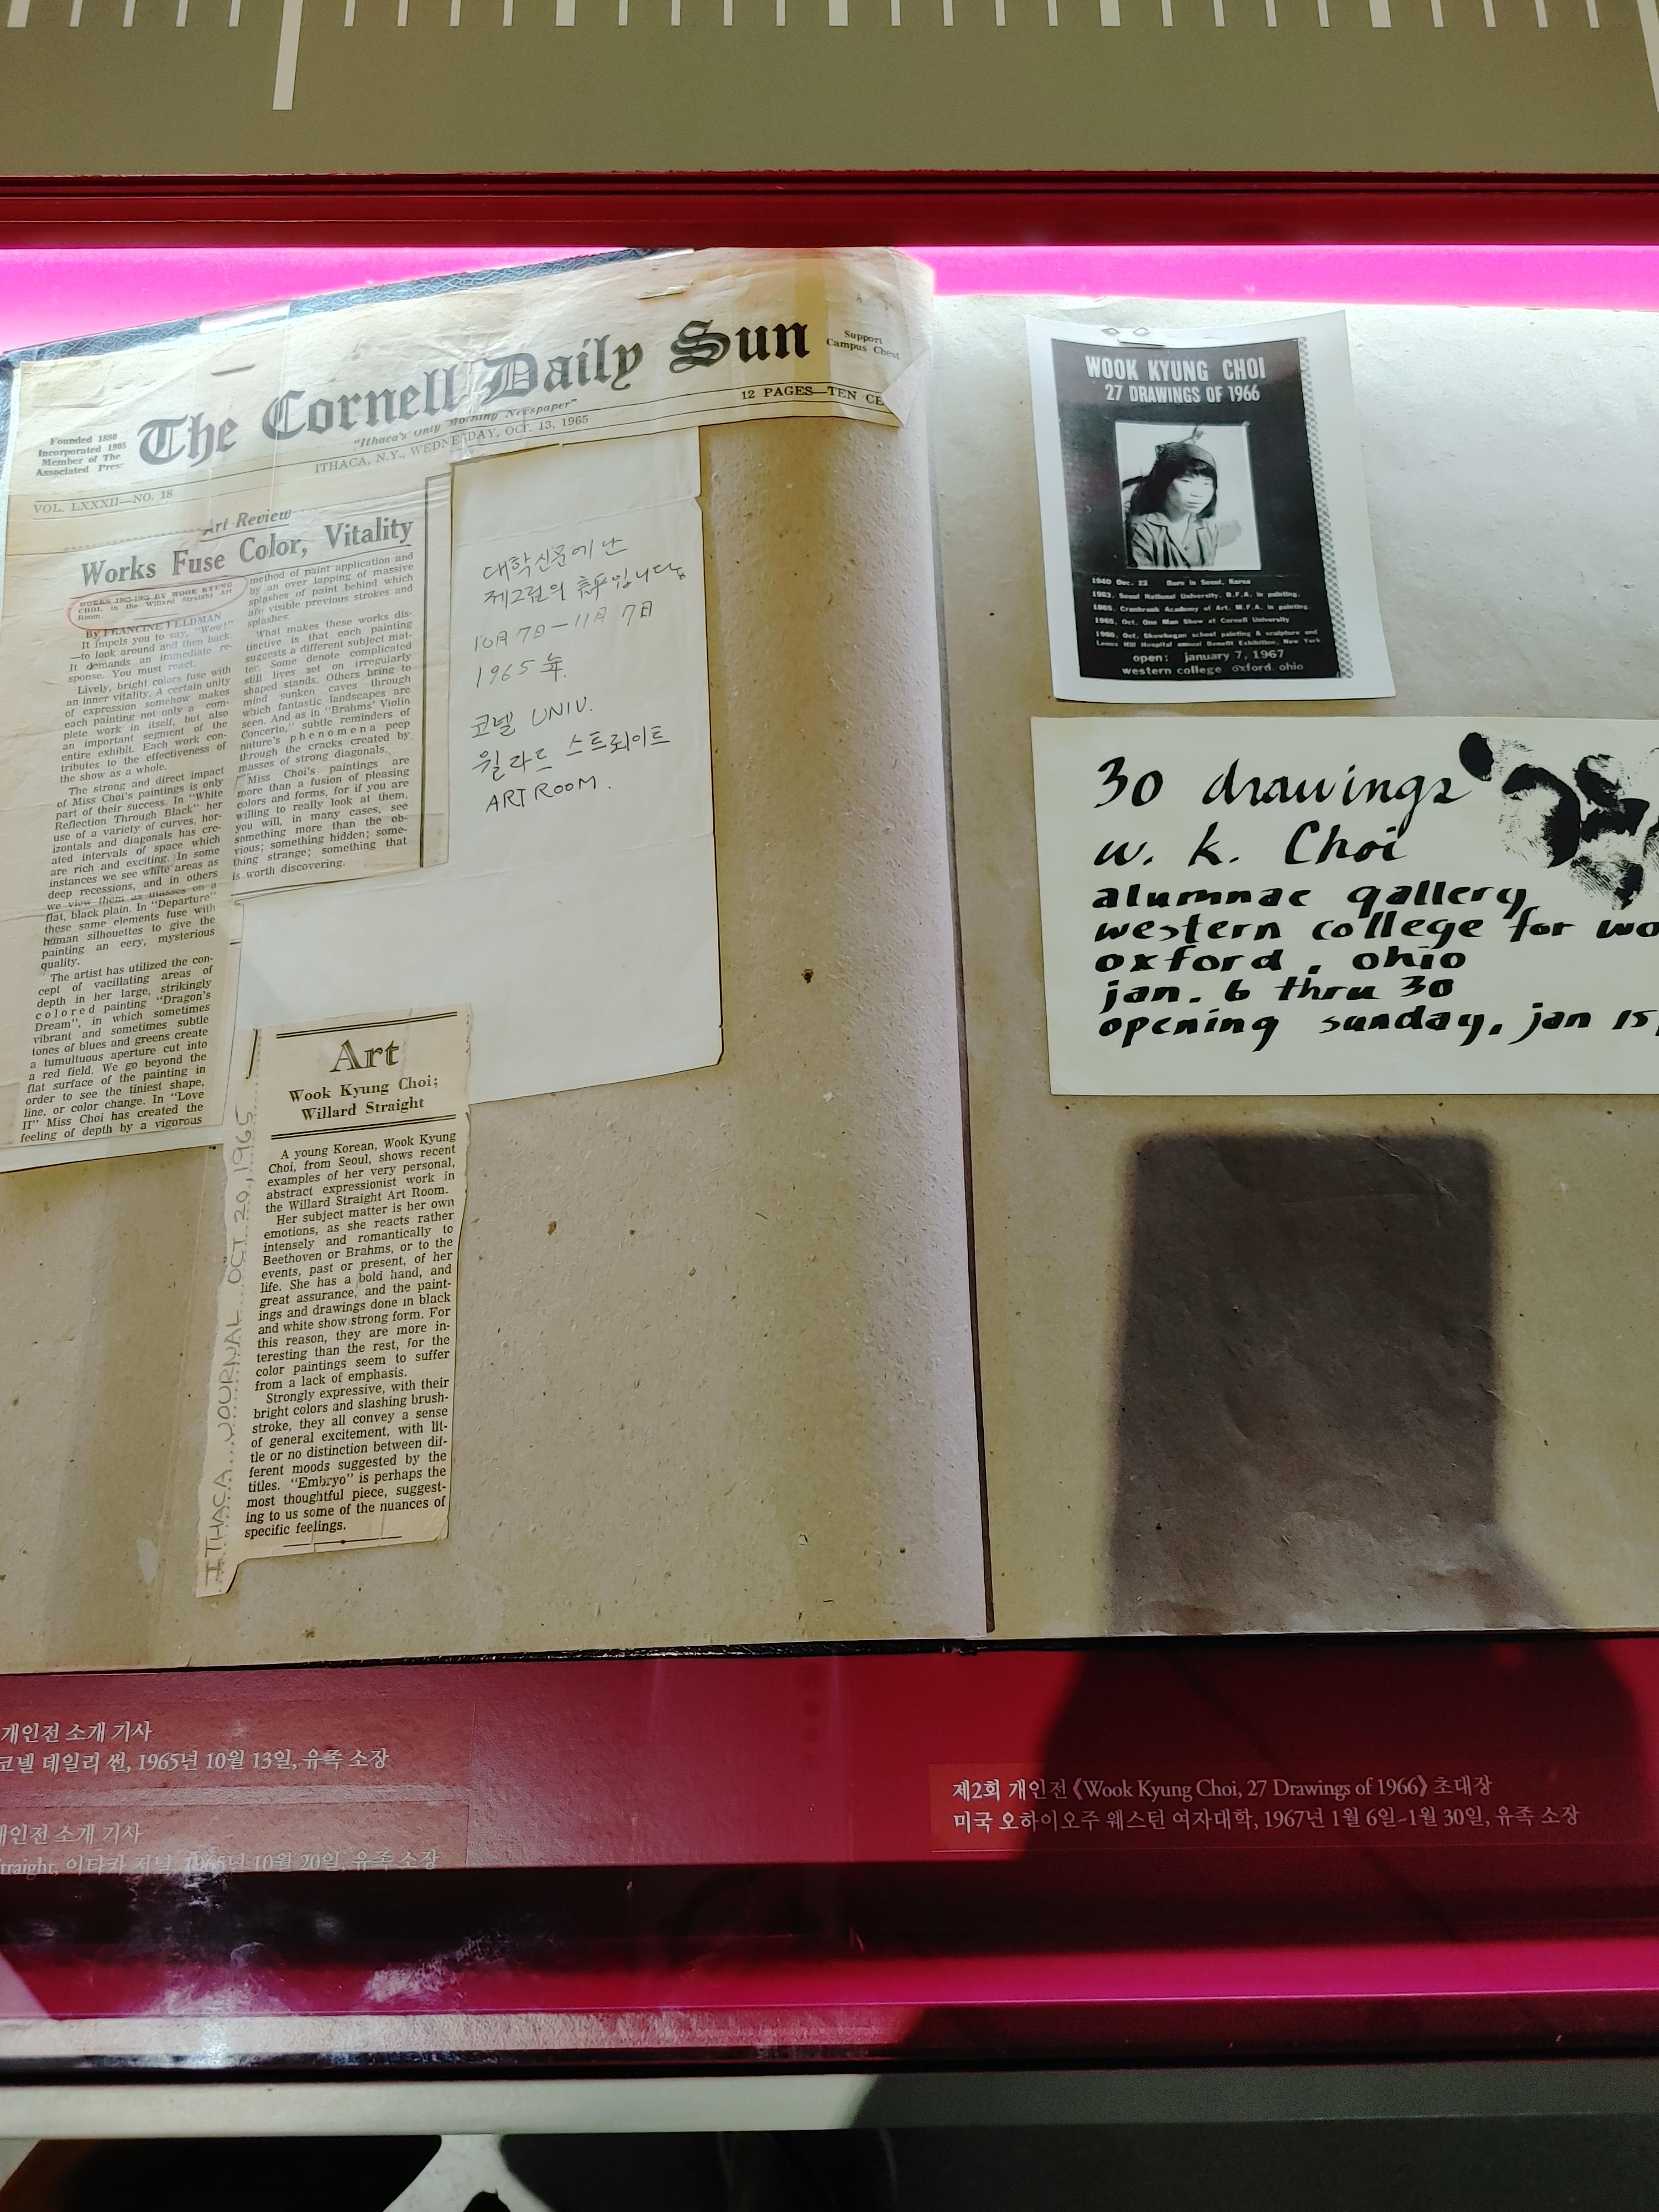 The Cornell Daily Sun
Support
Campus Chest
Founded 1880
Incorporated 1905
Member of The
Associated Press
"Ithaca's Only Morning Newspaper"
12 PAGES—TEN
VOL. LXXXII—NO. 18
ITHACA, N.Y., WEDNESDAY, OCT. 13, 1965
Art Review
Works Fuse Color, Vitality
WORKS 1963-1965 BY WOOK KYUNG
CHOI, in the Willard Straight Art
Room.
By FRANCINE FELDMAN
It impels you to say, "Wow!"
—to look around and then back.
It demands an immediate re-
sponse. You must react.
Lively, bright colors fuse with
an inner vitality. A certain unity
of expression somehow makes
each painting not only a com-
plete work in itself, but also
an important segment of the
entire exhibit. Each work con-
tributes to the effectiveness of
the show as a whole.
The strong and direct impact
of Miss Choi's paintings is only
part of their success. In "White
Reflection Through Black" her
use of a variety of curves, hor-
izontals and diagonals has cre-
ated intervals of space which
are rich and exciting. In some
instances we see white areas as
deep recessions, and in others
we view them as masses on a
flat, black plain. In "Departure"
these same elements fuse with
human silhouettes to give the
painting an eery, mysterious
quality.
The artist has utilized the con-
cept of vacillating areas of
depth in her large, strikingly
colored painting "Dragon's
Dream", in which sometimes
vibrant and sometimes subtle
tones of blues and greens create
a tumultuous aperture cut into
a red field. We go beyond the
flat surface of the painting in
order to see the tiniest shape,
line, or color change. In "Love
II" Miss Choi has created the
feeling of depth by a vigorous
method of paint application and
by an over lapping of massive
splashes of paint behind which
are visible previous strokes and
splashes.
What makes these works dis-
tinctive is that each painting
suggests a different subject mat-
ter. Some denote complicated
still lives set on irregularly
shaped stands. Others bring to
mind sunken caves through
which fantastic landscapes are
seen. And as in "Brahms' Violin
Concerto," subtle reminders of
nature's phenomena peep
through the cracks created by
masses of strong diagonals.
Miss Choi's paintings are
more than a fusion of pleasing
colors and forms, for if you are
willing to really look at them,
you will, in many cases, see
something more than the ob-
vious; something hidden; some-
thing strange; something that
is worth discovering.
대학신문에 난
제그림의 評입니다.
10月 7日 — 11月 7日
1965 年.
코넬 UNIV.
윌라드 스트레이트
ART ROOM.
ITHACA JOURNAL OCT. 20, 1965
Art
Wook Kyung Choi;
Willard Straight
A young Korean, Wook Kyung
Choi, from Seoul, shows recent
examples of her very personal,
abstract expressionist work in
the Willard Straight Art Room.
Her subject matter is her own
emotions, as she reacts rather
intensely and romantically to
Beethoven or Brahms, or to the
events, past or present, of her
life. She has a bold hand, and
great assurance, and the paint-
ings and drawings done in black
and white show strong form. For
this reason, they are more in-
teresting than the rest, for the
color paintings seem to suffer
from a lack of emphasis.
Strongly expressive, with their
bright colors and slashing brush-
stroke, they all convey a sense
of general excitement, with lit-
tle or no distinction between dif-
ferent moods suggested by the
titles. "Embryo" is perhaps the
most thoughtful piece, suggest-
ing to us some of the nuances of
specific feelings.
WOOK KYUNG CHOI
27 DRAWINGS OF 1966
1940 Dec. 22 Born in Seoul, Korea
1963. Seoul National University. B.F.A. in painting.
1965. Cranbrook Academy of Art. M.F.A. in painting.
1965, Oct. One Man Show at Cornell University
1966, Oct. Skowhegan school painting & sculpture and
Lenox Hill Hospital annual Benefit Exhibition, New York
open: january 7, 1967
western college oxford. ohio
30 drawings
w. k. Choi
alumnae gallery
western college for wo
oxford, ohio
jan. 6 thru 30
opening sunday, jan 15,
개인전 소개 기사
코넬 데일리 썬, 1965년 10월 13일, 유족 소장
개인전 소개 기사
traight, 이타카 저널, 1965년 10월 20일, 유족 소장
제2회 개인전 《Wook Kyung Choi, 27 Drawings of 1966》 초대장
미국 오하이오주 웨스턴 여자대학, 1967년 1월 6일~1월 30일, 유족 소장